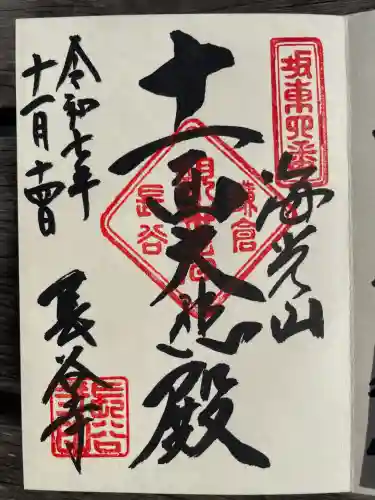 坂東四番
海光山
十一面大悲殿
鎌倉
長谷
令和七年
十一月十四日
長谷寺